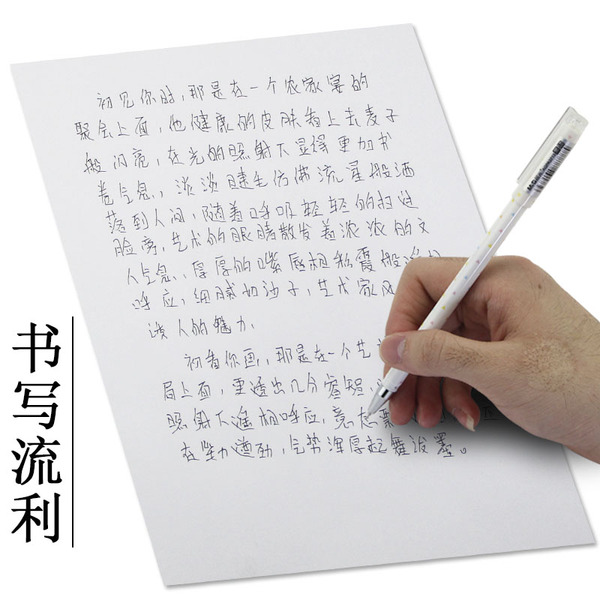 初见你时，那是在一个农家宴的
聚会上面，他健康的皮肤看上去麦子
般闪亮，在光的照射下显得更加书
卷气息，淡淡睫毛仿佛流星般洒
落到人间，随着呼吸轻轻的扫过
脸旁，艺术的眼睛散发着浓浓的文
人气息，厚厚的嘴唇相和霞般
呼应，细腻如沙子，艺术家风
人的魅力，
初看你画，那是在一个艺
局上面，里透出几分睿智，
照射下遥相呼应，竟
在 遒劲，气势浑厚 舞泼墨。
书写流利
M&G